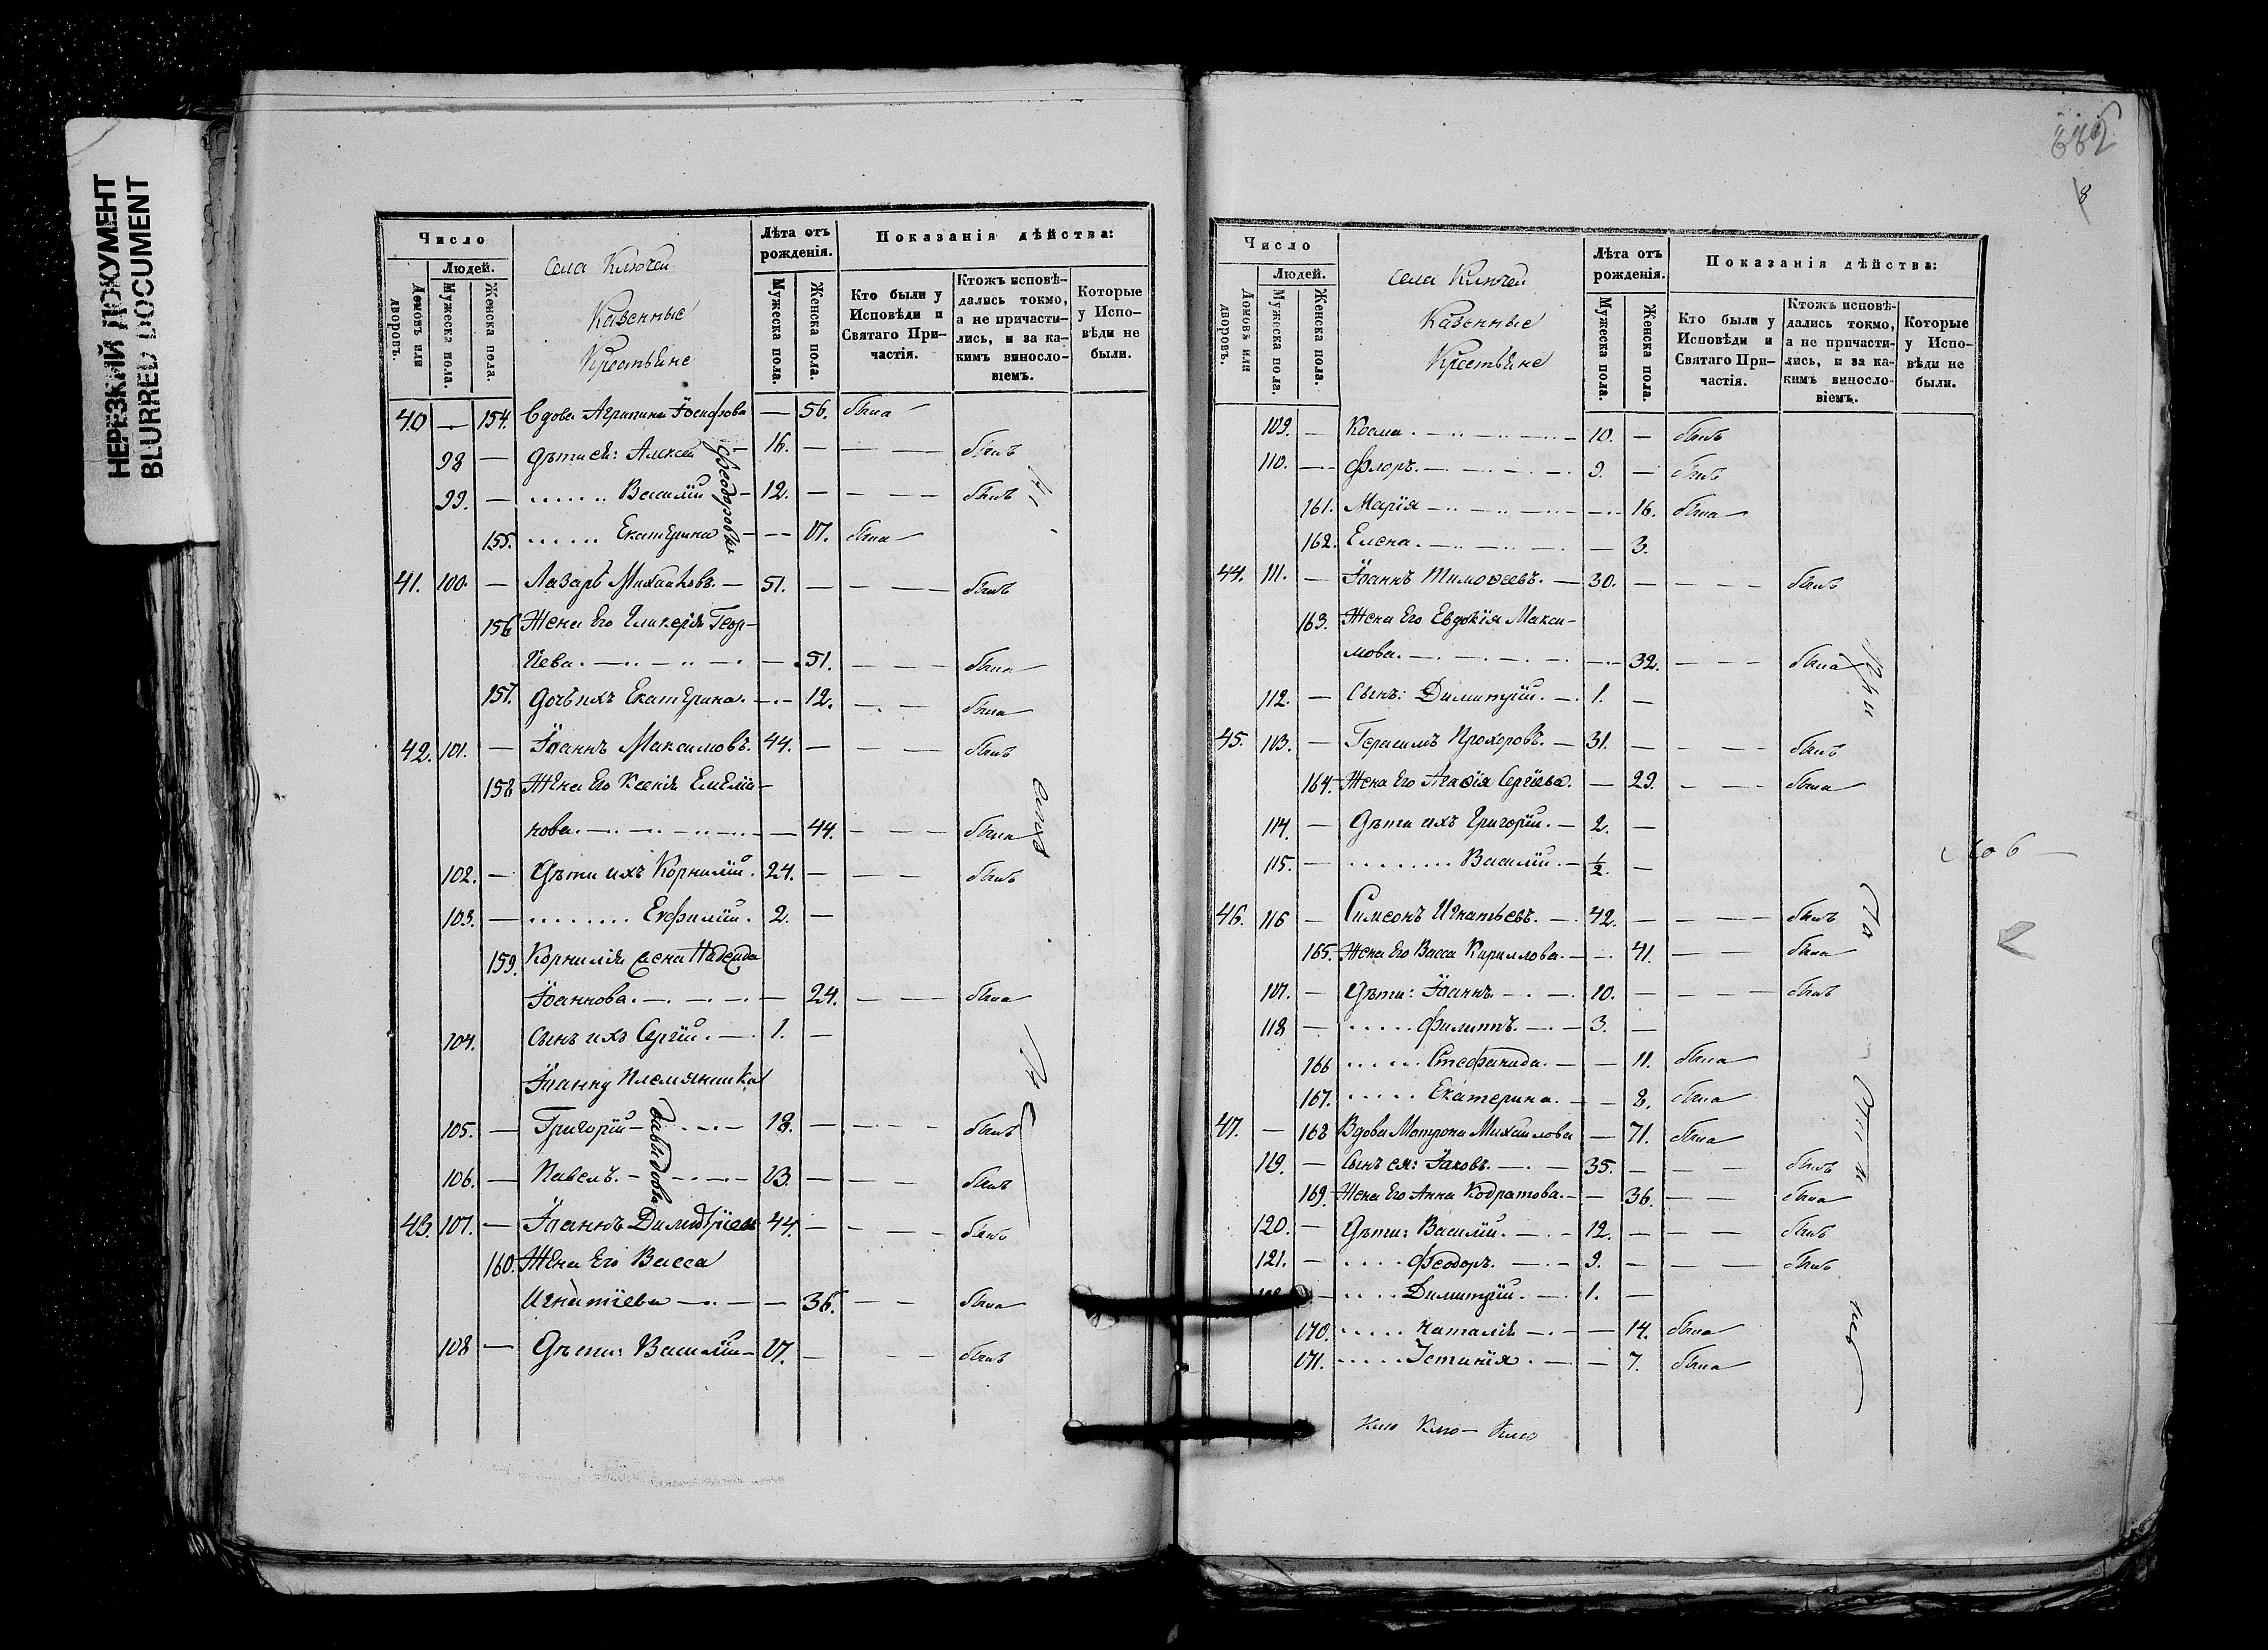 НЕРЕЗКИЙ ДОКУМЕНТ
BLURRED DOCUMENT
Число
Людей.
Домовъ или дворовъ.
Мужеска пола.
Женска пола.
Села Ключей
Казенные
Крестьяне
Лѣта отъ рожденія.
Мужеска пола.
Женска пола.
Показанія дѣйства:
Кто были у Исповѣди и Святаго Причастія.
Ктожъ исповѣ-
дались токмо,
а не причасти-
лись, и за ка-
кимъ виносло-
віемъ.
Которые
у Испо-
вѣди не
были.
40 — 154. Вдова Агрипина Іосифова — 56. была
98 — Дѣти ея: Алексѣй — 16. — — — былъ
Феодоровы
99. — ....... Василій — 12. — — — былъ
155. ...... Екатерина — — 17. была
41. 100. — Лазарь Михайловъ. — 51. — — — былъ
156 Жена его Гликерія Геор-
гіева. — — 51. — — была
157. Дочь ихъ Екатерина. — 12. — — была
42. 101. — Іоаннъ Максимовъ. 44. — — — былъ
158 Жена его Ксенія Емелія-
нова. — — 44. — — была
102. — Дѣти ихъ Корнилій. 24. — — — былъ
103. — ........ Евфимій. 2. —
159. Корнилія жена Надежда
Іоаннова. — — 24. — — была
104. Сынъ ихъ Сергій. — 1. —
Іоанну племянники
105. — Григорій — 18. — — — былъ
Давидовы
106. — Павелъ. — 13. — — — былъ
43. 107. — Іоаннъ Димитріевъ 44. — — — былъ
160. Жена его Васса
Игнатіева — — 36. — — была
108 — Дѣти: Василій — 17. — — — былъ
8
Число
Людей.
Домовъ или дворовъ.
Мужеска пола.
Женска пола.
Села Ключей
Казенные
Крестьяне
Лѣта отъ рожденія.
Мужеска пола.
Женска пола.
Показанія дѣйства:
Кто были у Исповѣди и Святаго Причастія.
Ктожъ исповѣ-
дались токмо,
а не причасти-
лись, и за ка-
кимъ виносло-
віемъ.
Которые
у Испо-
вѣди не
были.
109. — Косма. — 10. — былъ
110. — Флоръ. — 9. — былъ
161. Марія — — 16. была
162. Елена. — — 3.
44. 111. — Іоаннъ Тимоѳеевъ. — 30. — — — былъ
163. Жена его Евдокія Макси-
мова. — — 32. — — была
112. — Сынъ: Димитрій. — 1. —
45. 113. — Герасимъ Прохоровъ. — 31. — — — былъ
164. Жена его Агаѳія Сергіева. — 29. — — была
114. — Дѣти ихъ Григорій. — 2. —
115. — ........ Василій. — ½. —
46. 116 — Симеонъ Игнатьевъ. — 42. — — — былъ
165. Жена его Васса Кириллова. — 41. — — была
117. — Дѣти: Іоаннъ. — 10. — — — былъ
118 — ..... Филиппъ. — 3. —
166 ..... Стефанида. — — 11. была
167. ..... Екатерина. — — 8. была
47. — 168 Вдова Матрона Михайлова — 71. была
119. — Сынъ ея: Іаковъ. — 35. — — — былъ
169. Жена его Анна Кодратова. — — 36. — — была
120. — Дѣти: Василій. — 12. — — — былъ
121. — .... Феодоръ. — 9. — — — былъ
— .... Димитрій. — 1. —
170. ..... Наталія — — 14. была
171. ..... Іустинія. — — 7. была
Клю Клю — Клю